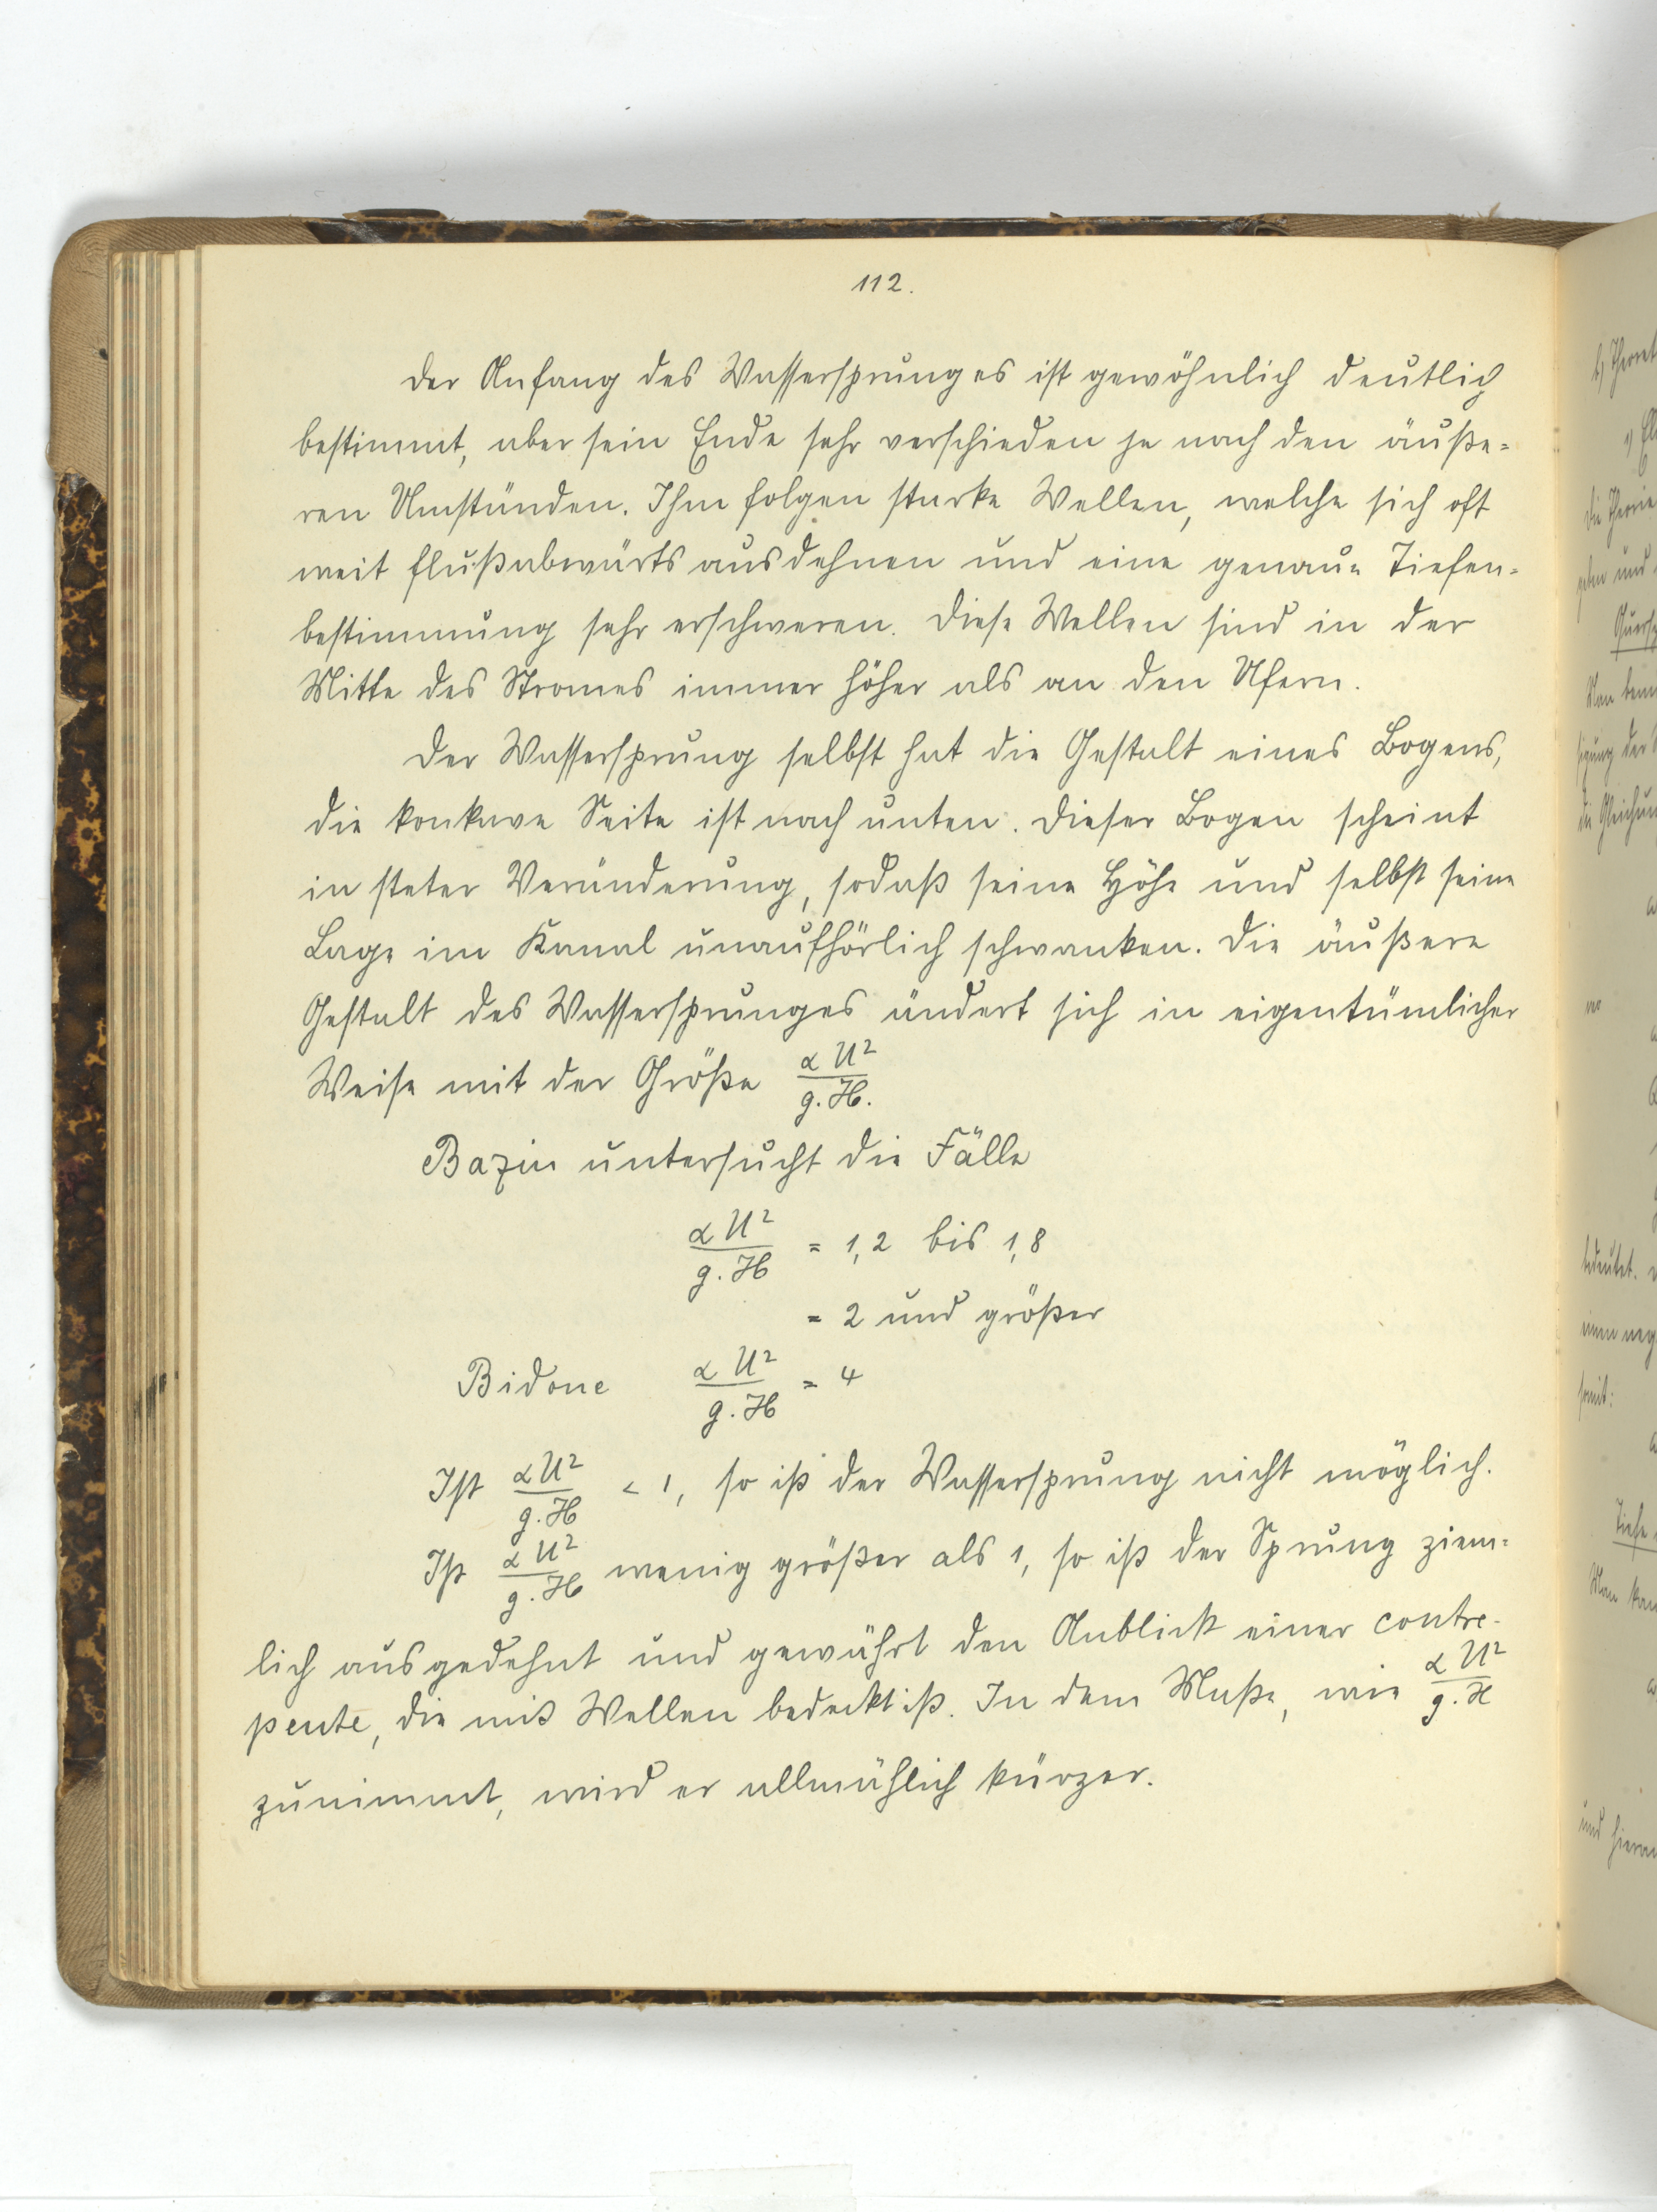 112.
Der Anfang des Wassersprunges ist gewöhnlich deutlich
bestimmt, aber sein Ende sehr verschieden je nach den äuße=
ren Umständen. Ihm folgen starke Wellen, welche sich oft
weit flußabwärts ausdehnen und eine genaue Tiefen=
bestimmung sehr erschweren. Diese Wellen sind in der
Mitte des Stromes immer höher als an den Ufern.
Der Wassersprung selbst hat die Gestalt eines Bogens,
die konkave Seite ist nach unten. Dieser Bogen scheint
in steter Veränderung, sodaß seine Höhe und selbst seine
Lage im Kanal unaufhörlich schwanken. Die äußere
Gestalt des Wassersprunges ändert sich in eigentümlicher
Weise mit der Größe α U² / g. H.
Bazin untersucht die Fälle
α U² / g. H = 1,2 bis 1,8
= 2 und größer
Bidone α U² / g. H = 4
Ist α U² / g. H < 1, so ist der Wassersprung nicht möglich.
Ist α U² / g. H wenig größer als 1, so ist der Sprung ziem=
lich ausgedehnt und gewährt den Anblick einer contre-
pente, die mit Wellen bedeckt ist. In dem Maße, wie α U² / g. H
zunimmt, wird er allmählich kürzer.